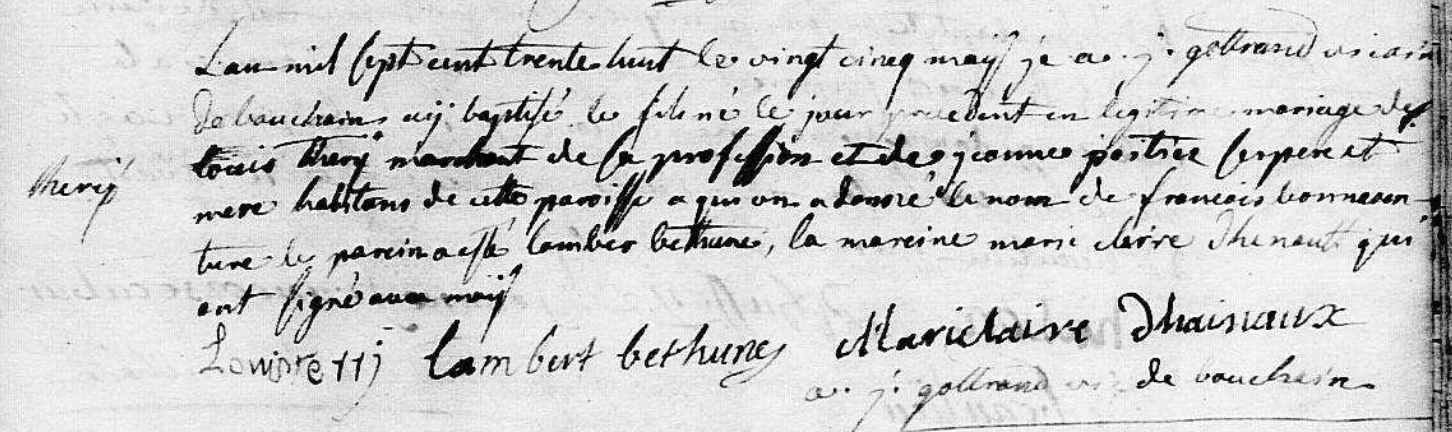 Lan mil sept cent trente huit le vingt cinq maÿ je a. j. gottrand vicair
de bouchain aÿ baptisé le fils né le jour precedent en legitime mariage de
thery
Louis therÿ marchant de sa profession et de jeanne postrée ses pere et
mere habitans de cette paroisse a qui on a donné le nom de francois bonnaven-
ture le parein a esté lamber bethune, la mareine marie clerre dhenaut qui
ont signé avec moÿ
Louis tettj lambert bethune Marie claire Dhainaux
a. j. gottrand vic de bouchain